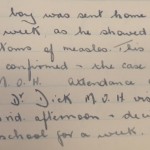 boy was sent home
week, as he showed
toms of measles. This
confirmed & the case
M.O.H. attendance
Dr Dick M.O.H.
nd. afternoon &
school for a week.